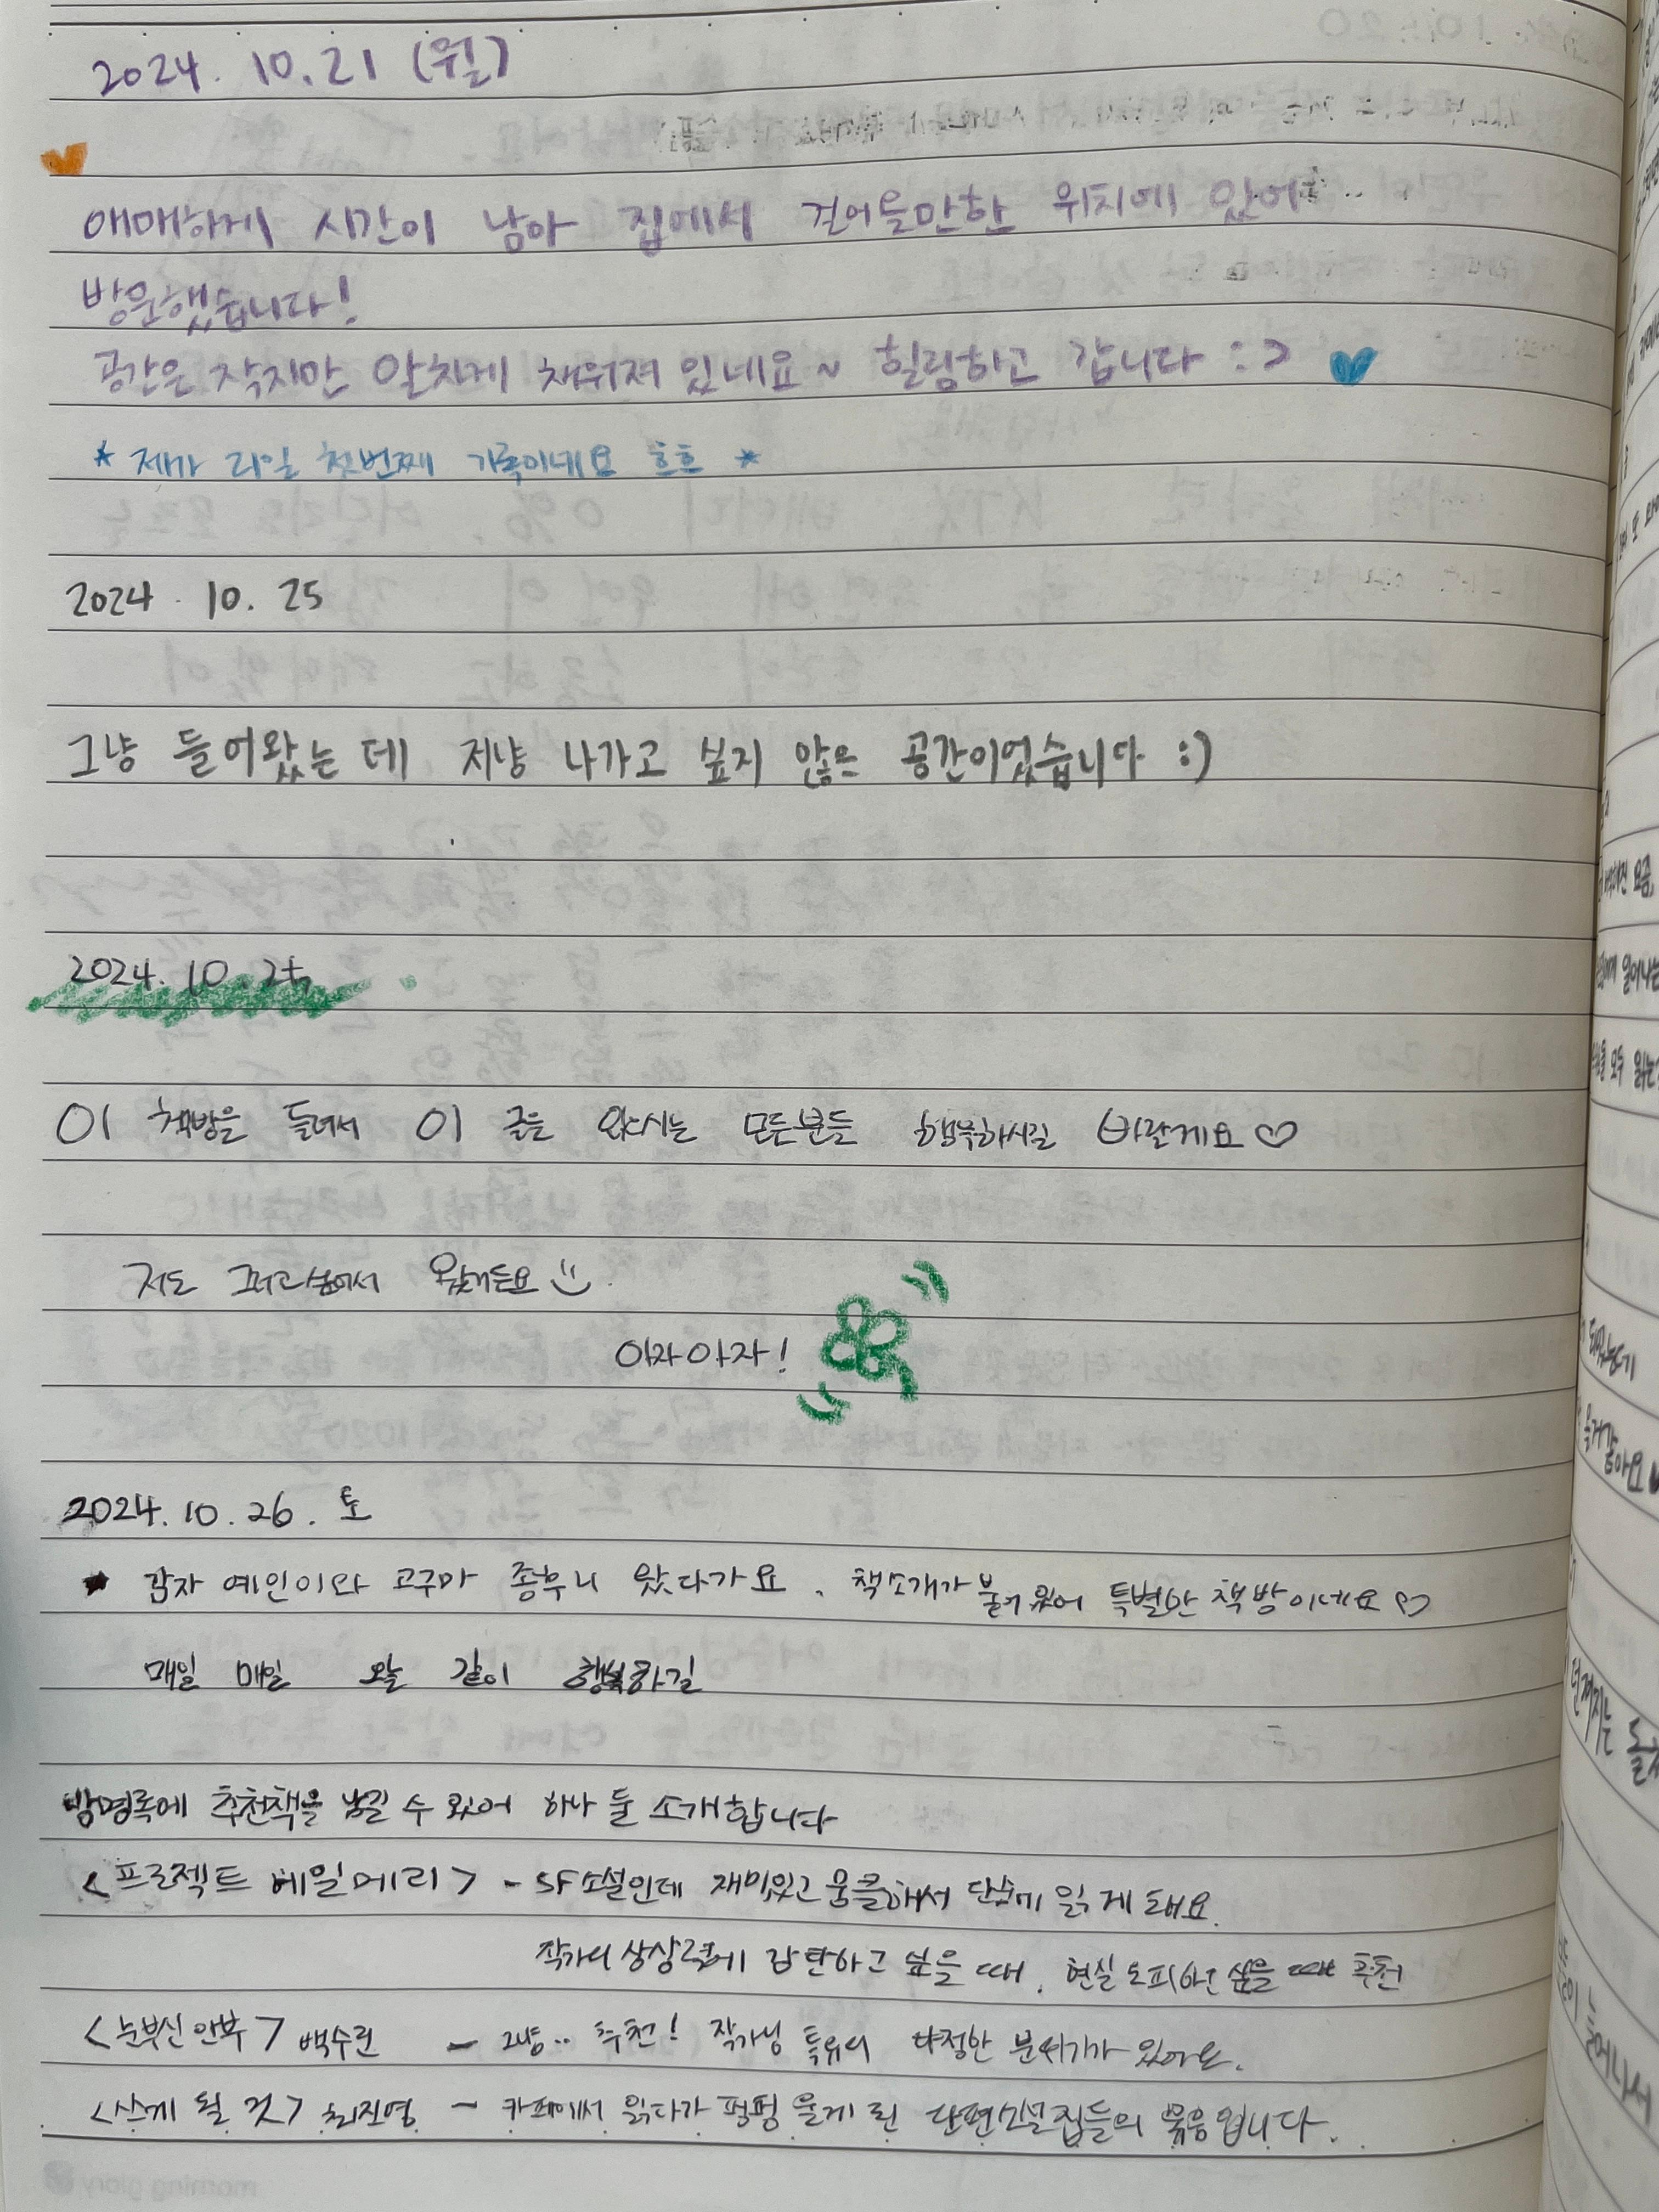 2024. 10. 21 (월)
애매하게 시간이 남아 집에서 걸어올만한 위치에 있어
방문했습니다!
공간은 작지만 알차게 채워져 있네요~ 힐링하고 갑니다 :>
* 제가 라일 첫번째 기록이네요 흐흐 *
2024. 10. 25
그냥 들어왔는데 저냥 나가고 싶지 않은 공간이었습니다 :)
2024. 10. 25
이 책방을 들려서 이 글을 보시는 모든분들 행복하시길 바랄게요♡
저도 그러고싶어서 왔거든요
아자아자!
2024. 10. 26. 토
감자 예인이와 고구마 종우니 왔다가요. 책소개가 붙어있어 특별한 책방이네요♡
매일 매일 오늘 같이 행복하길
방명록에 추천책을 남길 수 있어 하나 둘 소개합니다
<프로젝트 헤일메리> - SF소설인데 재미있고 뭉클해서 단숨에 읽게 돼요.
작가의 상상력에 감탄하고 싶을 때, 현실도피하고 싶을 때 추천
<눈부신 안부> 백수린 - 그냥.. 추천! 작가님 특유의 다정한 분위기가 있어요.
<쓰게 될 것> 최진영 - 카페에서 읽다가 펑펑 울게 된 단편소설집들의 묶음입니다.
morning glory